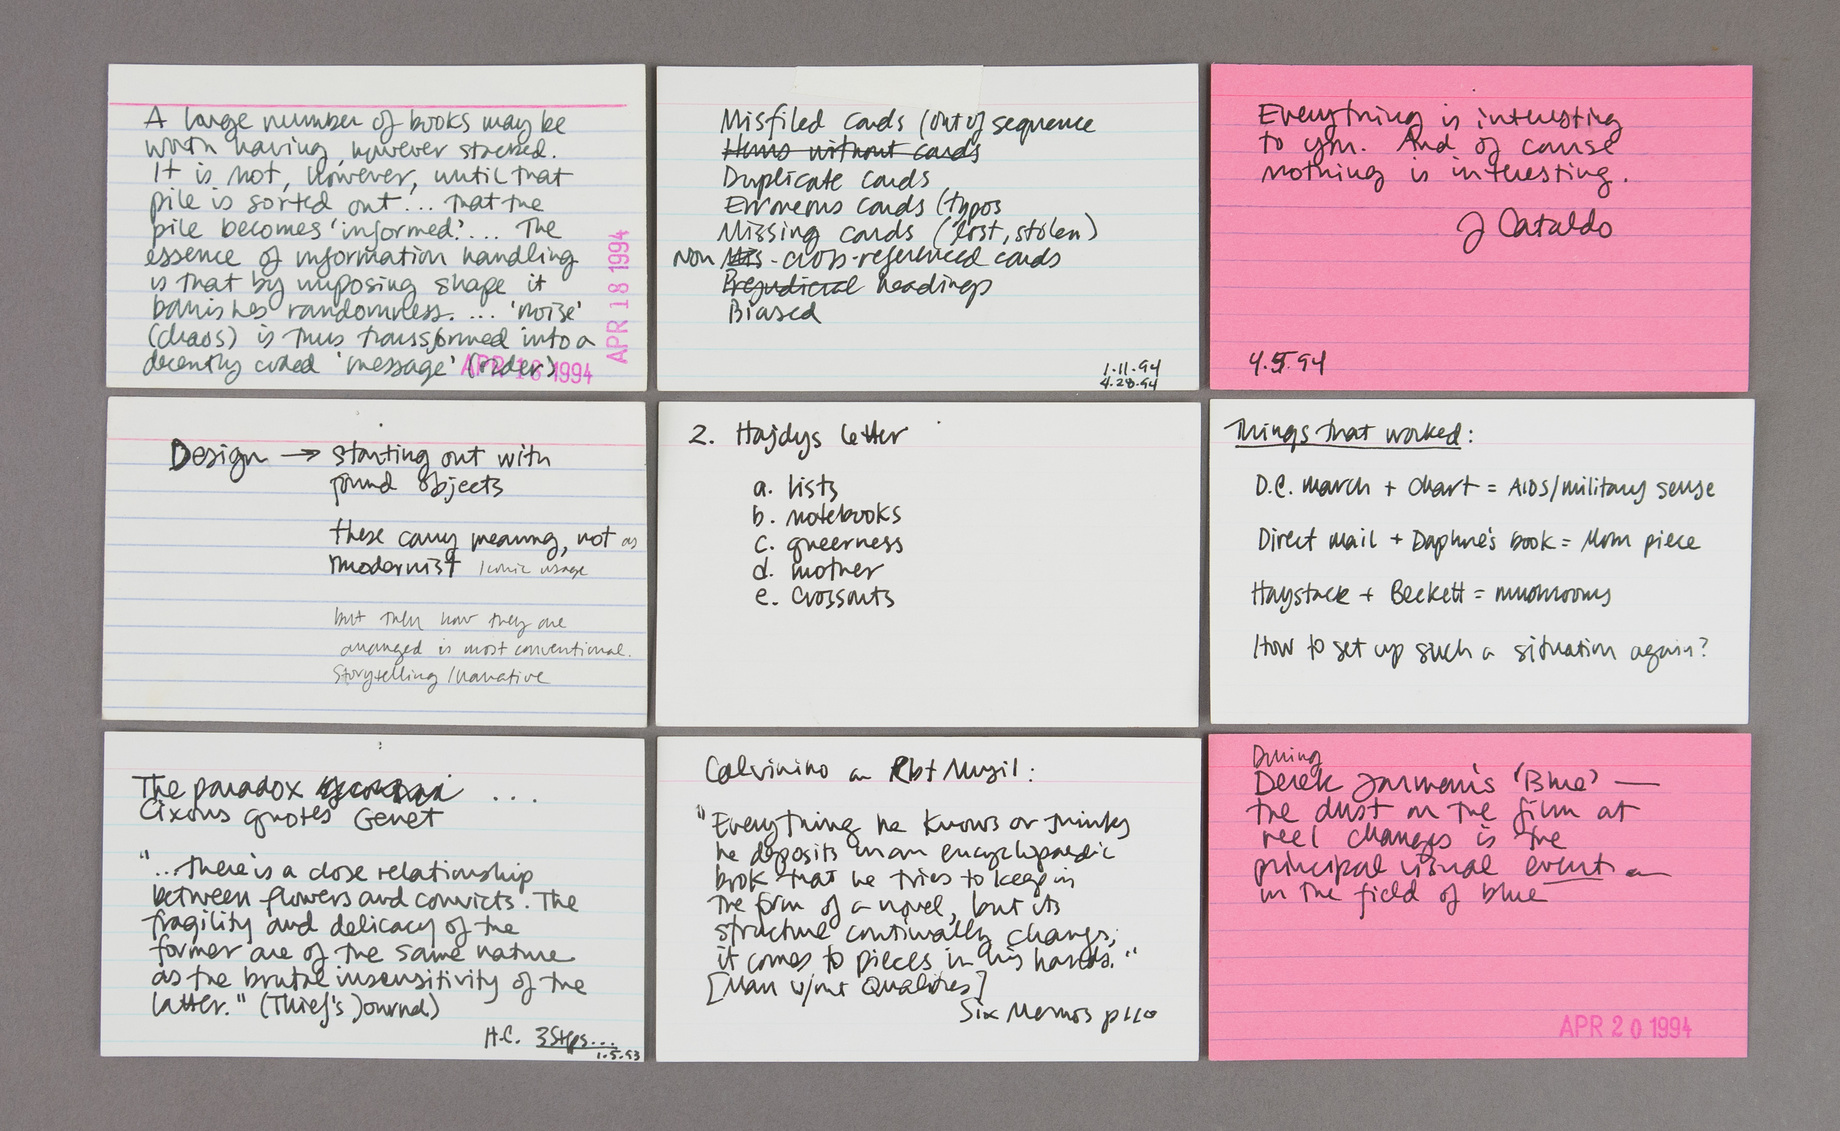 A large number of books may be
worth having, however stacked.
It is not, however, until that
pile is sorted out... that the
pile becomes 'informed.'... The
essence of information handling
is that by imposing shape it
banishes randomness. ... 'noise'
(chaos) is thus transformed into a
decently coded 'message' (order)
APR 18 1994
APR 18 1994
Misfiled cards (out of sequence
Items without cards
Duplicate cards
Erroneous cards (typos
Missing cards (lost, stolen)
Non Mis-cross-referenced cards
Prejudicial headings
Biased
1.11.94
4.28.94
Everything is interesting
to you. And of cause
nothing is interesting.
J Cataldo
4.5.94
Design → starting out with
found objects
these carry meaning, not as
modernist iconic usage
but then how they are
arranged is most conventional.
Storytelling/narrative
2. Hajdys letter
a. lists
b. notebooks
c. queerness
d. mother
e. crossouts
Things that worked:
D.C. march + chart = AIDS/military sense
Direct mail + Daphne's book = Mom piece
Haystack + Beckett = mushrooms
How to set up such a situation again?
The paradox ...
Cixous quotes Genet
"...there is a close relationship
between flowers and convicts. The
fragility and delicacy of the
former are of the same nature
as the brutal insensitivity of the
latter." (Thief's Journal)
H.C. 3 Steps...
1.5.93
Calvinino on Rbt Musil:
"Everything he knows or thinks
he deposits in an encyclopaedic
book that he tries to keep in
the form of a novel, but its
structure continually changes;
it comes to pieces in his hands."
[Man w/out Qualities]
Six Memos p110
During
Derek Jarman's 'Blue' —
the dust on the film at
reel changes is the
principal visual event —
in the field of blue
APR 20 1994